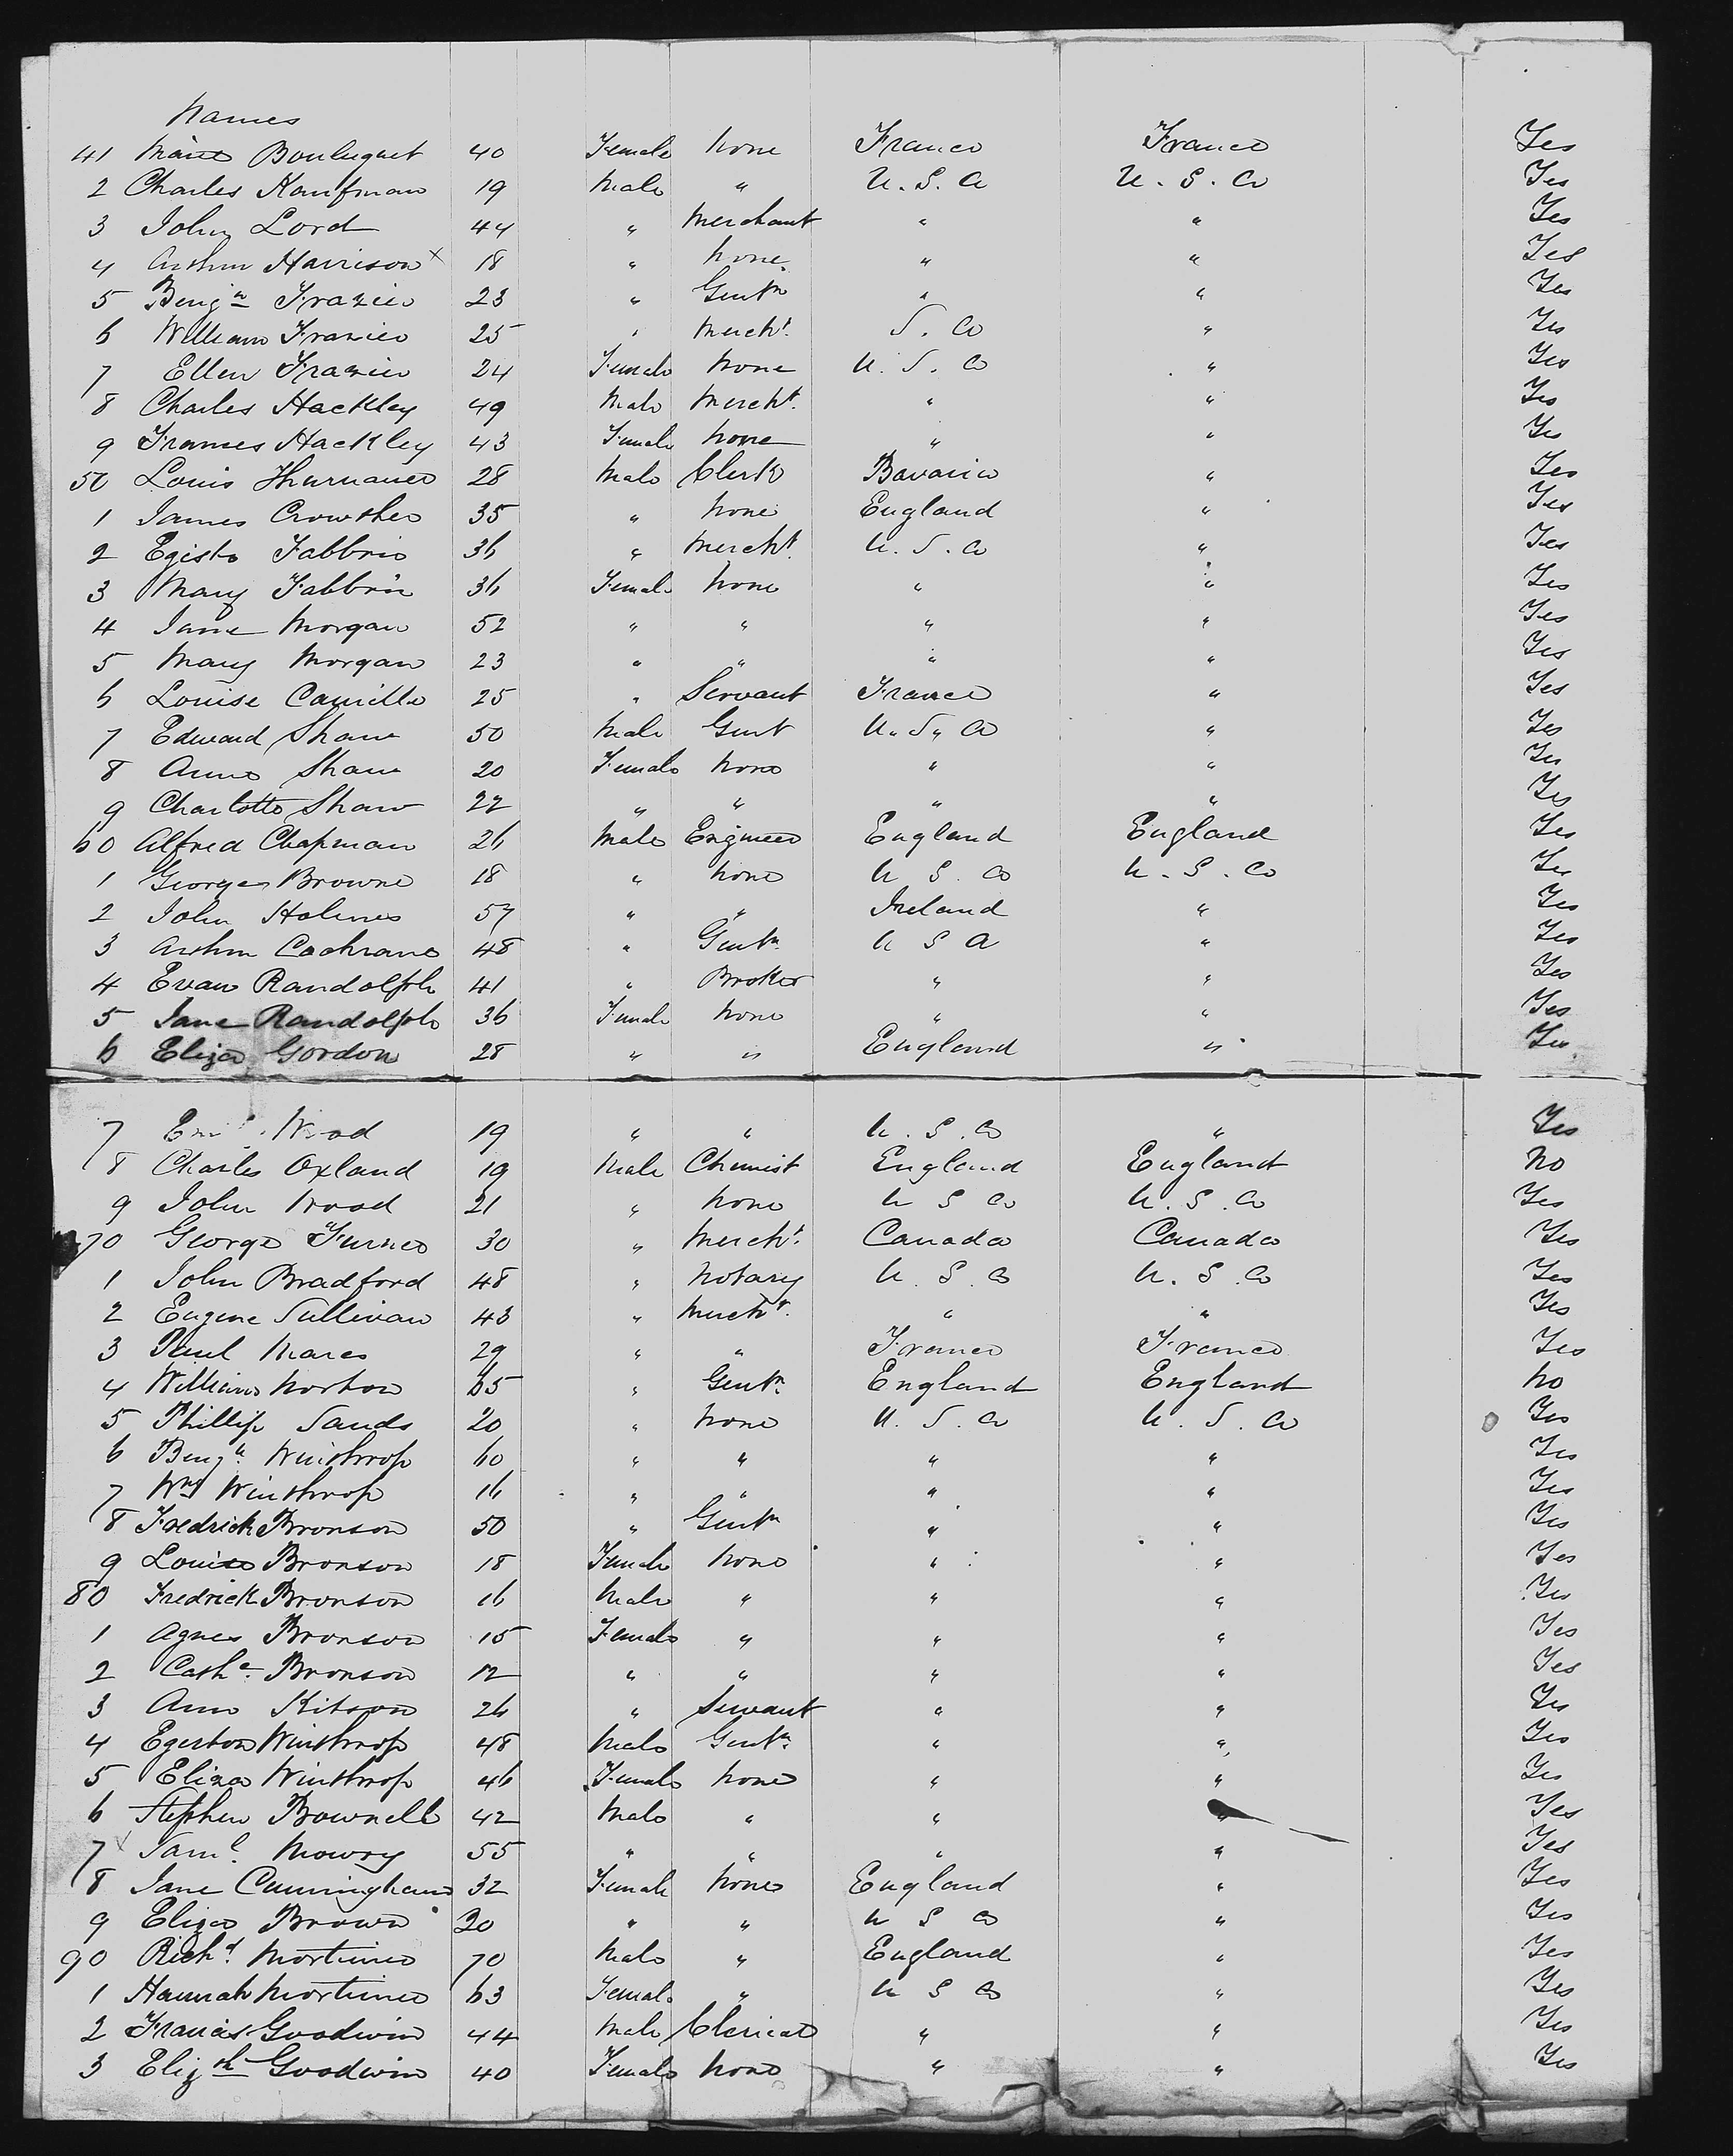 Names
41 Marie Bouluguet 40 Female None France France Yes
2 Charles Kaufman 19 Male " U.S.A U.S.A Yes
3 John Lord 44 " Merchant " " Yes
4 Arthur Harrison x 18 " None " " Yes
5 Benjn Frazier 23 " Gentn " " Yes
6 William Frazier 25 " Mercht. S. A " Yes
7 Ellen Frazier 24 Female None U.S.A " Yes
8 Charles Hackley 49 Male Mercht. " " Yes
9 Frances Hackley 43 Female None " " Yes
50 Louis Thurnauer 28 Male Clerk Bavaria " Yes
1 James Crowther 35 " None England " Yes
2 Egisto Fabbri 36 " Mercht. U.S.A " Yes
3 Mary Fabbri 36 Female None " " Yes
4 Jane Morgan 52 " " " " Yes
5 Mary Morgan 23 " " " " Yes
6 Louise Camille 25 " Servant France " Yes
7 Edward Shaw 50 Male Gent U.S.A " Yes
8 Anna Shaw 20 Female None " " Yes
9 Charlotte Shaw 22 " " " " Yes
60 Alfred Chapman 26 Male Engineer England England Yes
1 George Browne 18 " None U S. A U.S.A Yes
2 John Holmes 57 " " Ireland " Yes
3 Arthur Cochrane 48 " Gentn U S A " Yes
4 Evan Randolph 41 " Broker " " Yes
5 Jane Randolph 36 Female None " " Yes
6 Eliza Gordon 28 " " England " Yes
7 Wood 19 " " U.S.A " Yes
8 Charles Oxland 19 Male Chemist England England No
9 John Wood 21 " None U S A U.S.A Yes
70 George Furner 30 " Mercht. Canada Canada Yes
1 John Bradford 48 " Notary U.S.A U.S.A Yes
2 Eugene Sullivan 43 " Mercht. " " Yes
3 Paul Mares 29 " " France France Yes
4 William Norton 65 " Gentn. England England No
5 Phillip Sands 20 " None U.S.A U.S.A Yes
6 Benjn. Winthrop 60 " " " " Yes
7 Wm Winthrop 16 " " " " Yes
8 Fredrick Bronson 50 " Gentn " " Yes
9 Louisa Bronson 18 Female None " " Yes
80 Fredrick Bronson 16 Male " " " Yes
1 Agnes Bronson 15 Female " " " Yes
2 Cathe. Bronson 12 " " " " Yes
3 Ann Kitson 26 " Servant " " Yes
4 Egerton Winthrop 48 Male Gentn. " " Yes
5 Eliza Winthrop 46 Female None " " Yes
6 Stephen Brownell 42 Male " " " Yes
7 x Saml. Mowry 55 " " " " Yes
8 Jane Cunningham 32 Female None England " Yes
9 Eliza Brown 20 " " U S A " Yes
90 Richd. Mortimer 70 Male " England " Yes
1 Hannah Mortimer 63 Female " U S A " Yes
2 Francis Goodwin 44 Male Clerical " " Yes
3 Elizth Goodwin 40 Female None " " Yes